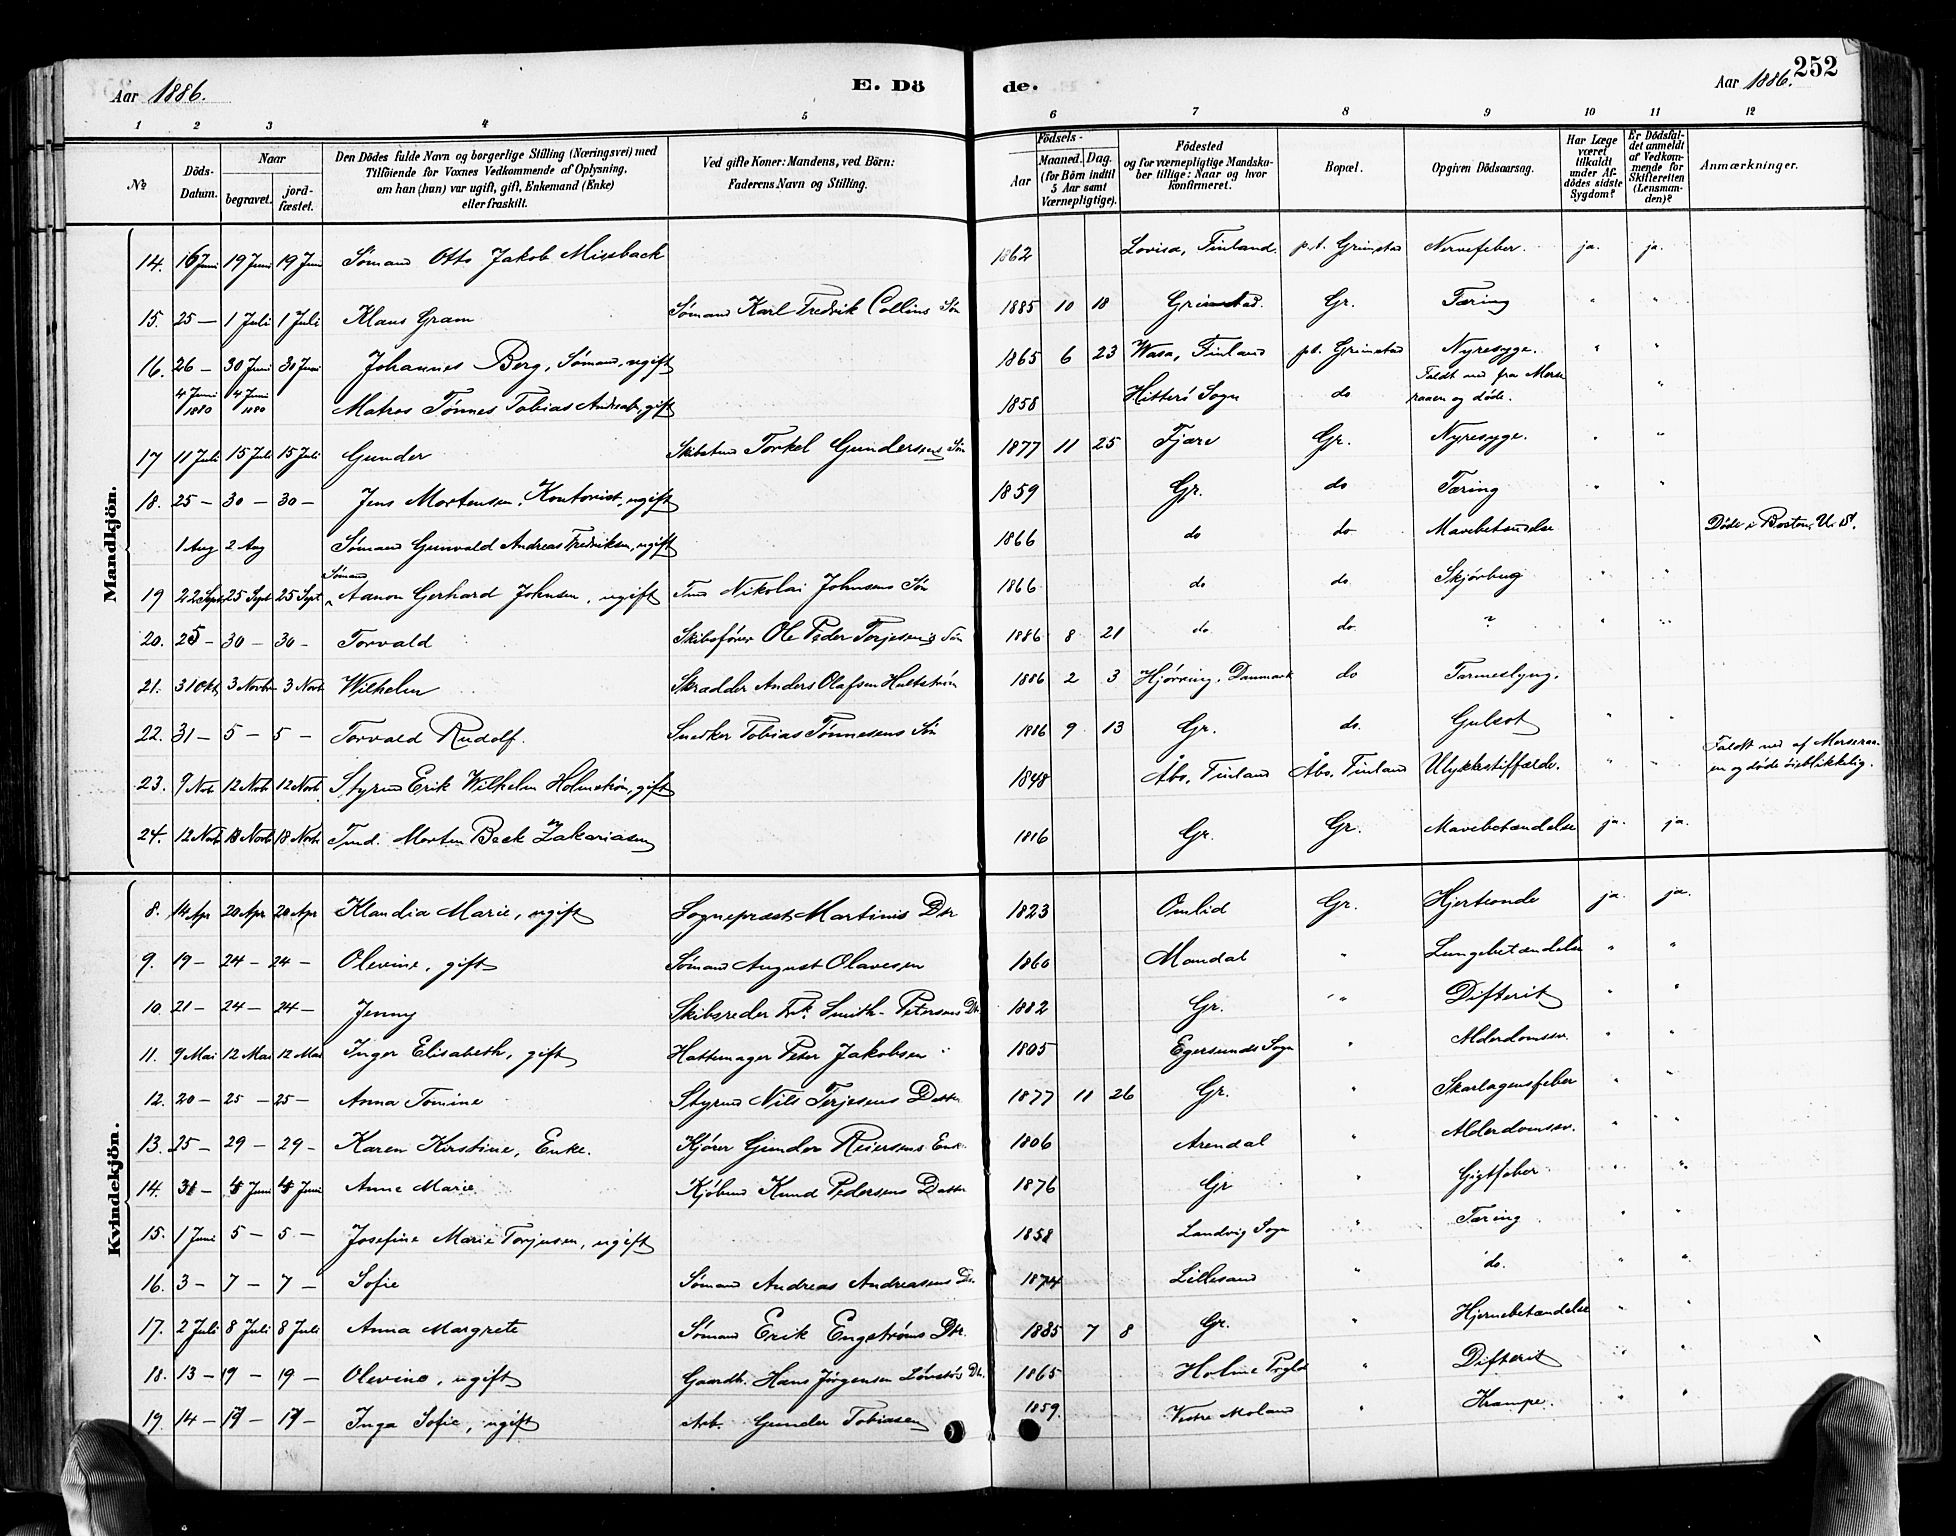 Aar 1886. E. Dö de. Aar 1886. 252
1 2 3 4 5 6 7 8 9 10 11 12
№ Döds-Datum. Naar begravet. jordfæstet. Den Dödes fulde Navn og borgerlige Stilling (Næringsvei) med Tilföiende for Voxnes Vedkommende af Oplysning, om han (hun) var ugift, gift, Enkemand (Enke) eller fraskilt. Ved gifte Koner: Mandens, ved Börn: Faderens Navn og Stilling. Födsels- Aar Maaned. Dag. (for Börn indtil 5 Aar samt Værnepligtige). Födested og for værnepligtige Mandskaber tillige: Naar og hvor konfirmeret. Bopæl. Opgiven Dödsaarsag. Har Læge været tilkaldt under Afdödes sidste Sygdom? Er Dödsfaldet anmeldt af Vedkommende for Skifteretten (Lensmanden)? Anmærkninger.
Mandkjön.
14. 16 Juni 19 Juni 19 Juni Sømand Otto Jakob Missback 1862 Lovisa, Finland. p.t. Grimstad Nervefeber. ja. ja.
15. 25 — 1 Juli 1 Juli Klaus Gram Sømand Karl Fredrik Collins Søn 1885 10 18 Grimstad. Gr. Tæring " "
16. 26 — 30 Juni 30 Juni Johannes Berg, Sømand, ugift 1865 6 23 Wasa, Finland pt. Grimstad Nyresyge. " "
4 Juni 1880 4 Juni 1880 Matros Tønnes Tobias Andreas, gift 1858 Hitterø Sogn do Faldt ned fra Merse raaen og døde. "
17 11 Juli 15 Juli 15 Juli Gunder Skibstmd Torkel Gundersens Søn 1877 11 25 Fjære Gr. Nyresyge. " "
18. 25 — 30 — 30 — Jens Mortensen, Kontorist, ugift 1859 Gr. do Tæring " "
1 Aug 2 Aug Sømand Gunvald Andreas Fredriksen, ugift 1866 do do Mavebetændelse Døde i Boston, U. S.
19 22 Sept 25 Sept 25 Sept Sømand Aanon Gerhard Johnsen, ugift Tmd Nikolai Johnsens Søn 1866 do do. Skjørbug " "
20. 25 — 30 — 30 — Torvald Skibsfører Ole Peder Terjesens Søn 1886 8 21 do. do. ? " "
21. 31 Okt 3 Novb 3 Novb Wilhelm Skrædder Anders Olafsen Hultstrøm 1886 2 3 Hjørring, Danmark do Tarmeslyng.
22. 31 — 5 — 5 — Torvald Rudolf. Snedker Tobias Tønnesens Søn 1886 9 13 Gr. do. Gulsot " "
23. 9 Novb 12 Novb 12 Novb. Styrmd Erik Wilhelm Holmstrøm, gift 1848 Åbo, Finland Åbo, Finland Ulykkestilfælde. " " Faldt ned af Merseraaen og døde øieblikkelig.
24. 12 Novb 18 Novb 18 Novb Tmd. Morten Beck Zakariasen 1816 Gr. Gr. Mavebetændelse ja. ja.
Kvindekjön.
8. 14 Apr 20 Apr 20 Apr Klaudia Marie, ugift Sogneprest Martinis Dtr 1823 Omlid Gr. Hjerteonde ja. ja.
9. 19 — 24 — 24 — Olevine, gift Sømand August Olavesen 1860 Mandal " Lungebetændelse " "
10. 21 — 24 — 24 — Jenny Skibsreder Frk. Smith-Petersens Dtr. 1882 Gr. " Difterit " "
11. 9 Mai 12 Mai 12 Mai Inger Elisabeth, gift Hattemager Peter Jakobsen 1805 Egersunds Sogn " Alderdomssv. " "
12. 20 — 25 — 25 — Anna Tomine Styrmd Nils Terjesens Datter 1877 11 26 Gr. " Skarlagensfeber " "
13. 25 — 29 — 29 — Karen Kirstine, Enke. Kjører Gunder Reiersens Enke 1806 Arendal " Alderdomssv. " "
14. 31 — 4 Juni 4 Juni Anne Marie Kjøbmd Knud Pedersens Datter 1876 Gr " Gigtfeber " "
15. 1 Juni 5 — 5 — Josefine Marie Torjusen, ugift 1858 Landvig Sogn " Tæring " "
16. 3 — 7 — 7 — Sofie Sømand Andreas Andreasens Dtr. 1874 Lillesand " do. " "
17. 2 Juli 8 Juli 8 Juli Anna Margrete Sømand Erik Engstrøms Dtr. 1885 7 8 Gr. " Hjernebetændelse " "
18. 13 — 19 — 19 — Olevine, ugift Gaardb. Hans Jørgensen Dtr. 1865 Holme Prgld " Difterit " "
19. 14 — 17 — 17 — Inga Sofie, ugift Arb. Gunder Tobiasen 1859. Vestre Moland " Krampe. " "